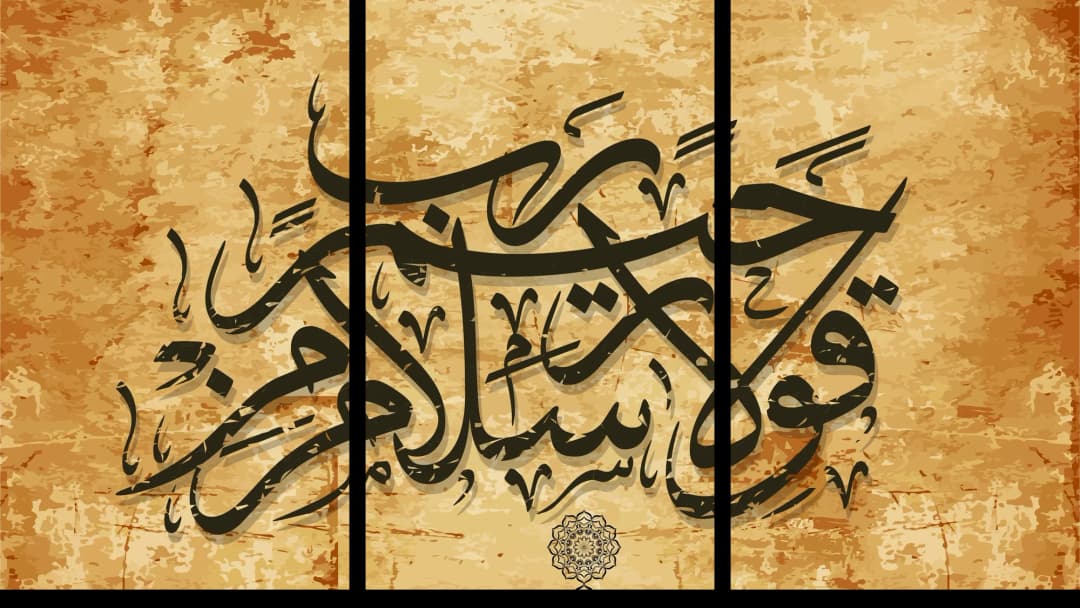 سلام قولا من رب رحيم